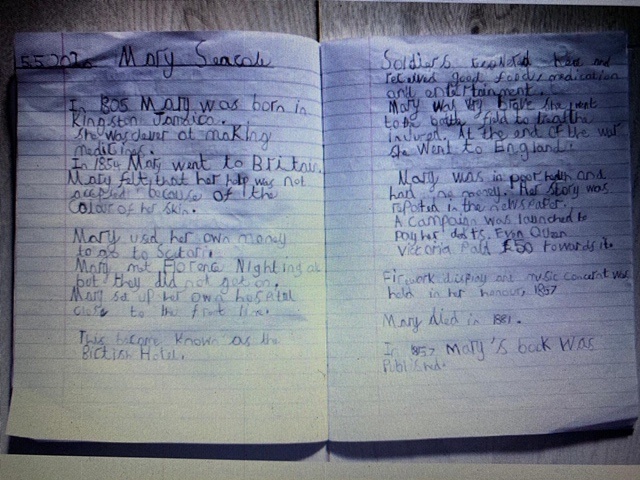 5.5.2020 Mary Seacole
In 1805 Mary was born in
Kingston Jamaica.
She was clever at making
medicines.
In 1854 Mary went to Britain.
Mary felt that her help was not
accepted because of the
colour of her skin.
Mary used her own money
to go to Scutari.
Mary met Florence Nightingale
but they did not get on.
Mary set up her own hospital
close to the front line.
This became known as the
British Hotel.
Soldiers here and
received good food, medication
and entertainment.
Mary was very brave she went
to the battle field to treat the
injured. At the end of the war
she went to England.
Mary was in poor health and
had no money. Her story was
reported in the newspaper.
A campaign was launched to
pay her debts. Even Queen
Victoria Paid £50 towards it.
Firework display and music concert was
held in her honour, 1857
Mary died in 1881.
In 1857 Mary's book was
Published.